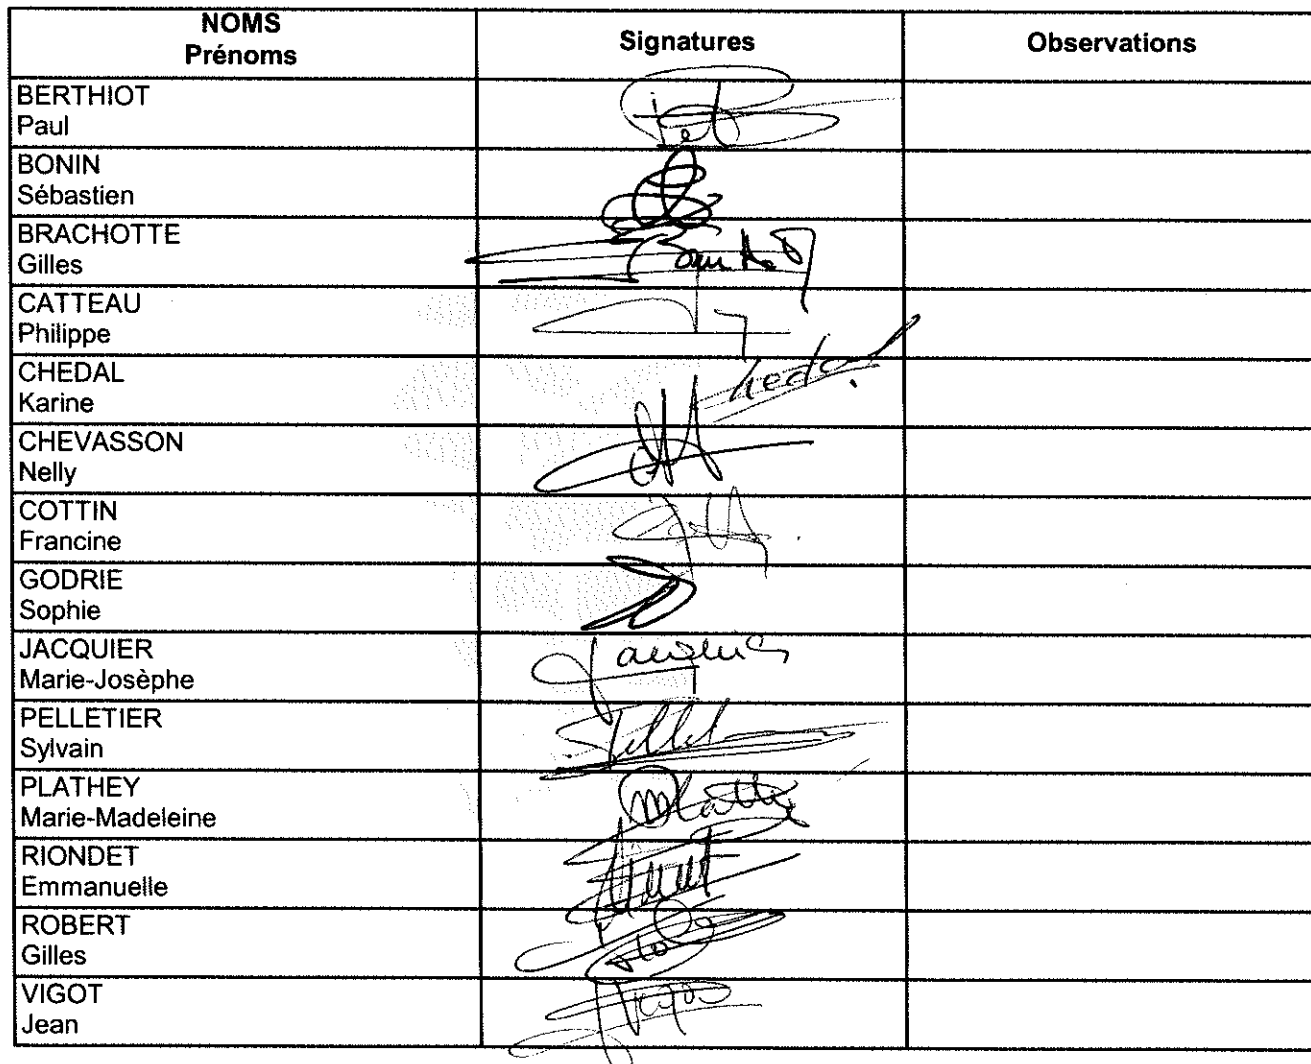 NOMS
Prénoms
Signatures
Observations
BERTHIOT
Paul
BONIN
Sébastien
BRACHOTTE
Gilles
CATTEAU
Philippe
CHEDAL
Karine
CHEVASSON
Nelly
COTTIN
Francine
GODRIE
Sophie
JACQUIER
Marie-Josèphe
PELLETIER
Sylvain
PLATHEY
Marie-Madeleine
RIONDET
Emmanuelle
ROBERT
Gilles
VIGOT
Jean